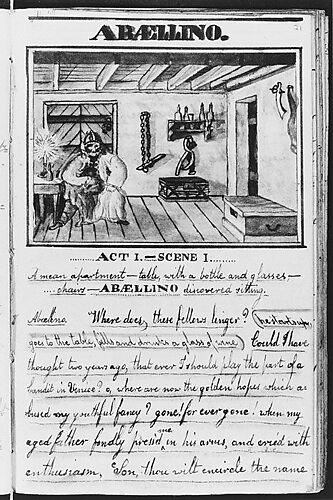 ABÆLLINO.
ACT I.—SCENE I
A mean apartment — table, with a bottle and glasses —
chairs — ABÆLLINO discovered sitting.
Abællino Where does, these fellows linger? (he starts up,
goes to the table, fills and drinks a glass of wine) Could I have
thought two years ago, that ever I should play the part of a
bandit in Venice? o, where are now the golden hopes which
my youthful fancy? gone! for ever gone. when my
aged father fondly press'd me in his arms, and cried with
enthusiasm, Son, thou wilt encircle the name